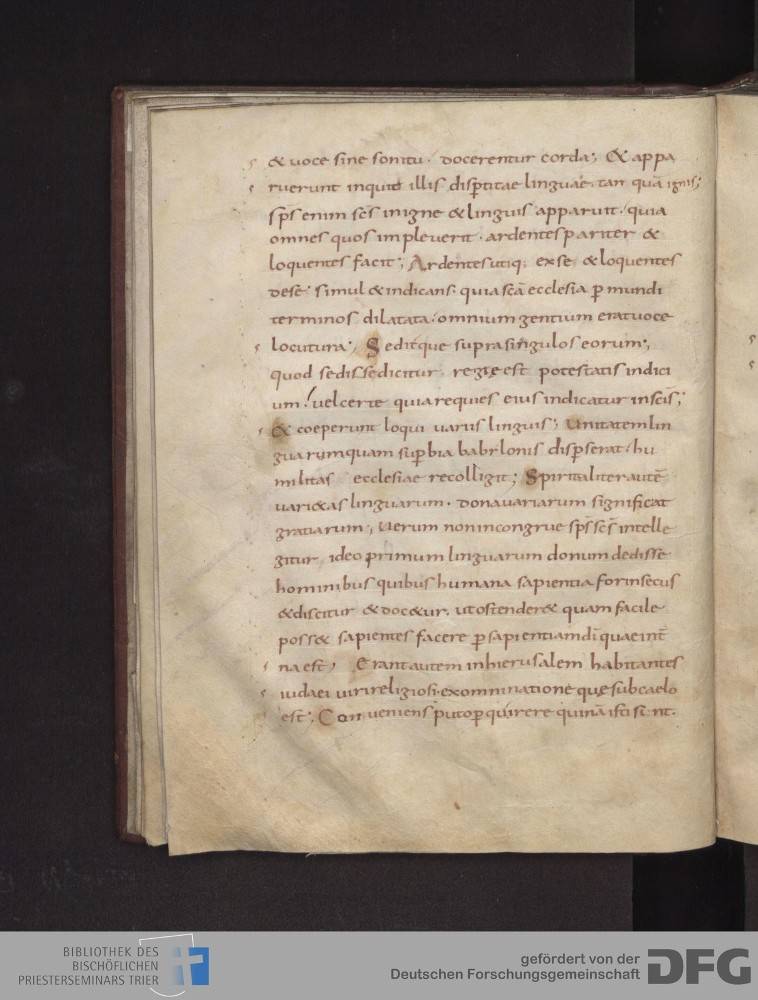 & uoce sine sonitu. docerentur corda; & appa
ruerunt inquid illis disptitae linguae. tan quā ignis;
sps enim scs in igne & linguis apparuit. quia
omnes quos impleuerit. ardentes pariter &
loquentes facit; Ardentes utiq; ex se & loquentes
de se. simul & indicans. quia scā ecclesia p mundi
terminos dilatata. omnium gentium erat uoce
locutura; Seditque supra singulos eorum;
quod sedisse dicitur regię est potestatis indici
um. uel certe quia requies eius indicatur in scis;
& coeperunt loqui uariis linguis; Unitatem lin
guarum quam supbia babylonis dispserat. hu
militas ecclesiae recolligit; Spiritaliter autē
uari&as linguarum. dona uariarum significat
gratiarum; Uerum non incongrue sps scs intelle
gitur. ideo primum linguarum donum dedisse
hominibus quibus humana sapientia forinsecus
& discitur & doc&ur. ut ostender& quam facile
poss& sapientes facere p sapientiam di quae int
na est; Erant autem in hierusalem habitantes
iudaei uiri religiosi. ex omni natione quę sub caelo
est; Conueniens puto pquirere qui nā isti sint.
BIBLIOTHEK DES
BISCHÖFLICHEN
PRIESTERSEMINARS TRIER
gefördert von der
Deutschen Forschungsgemeinschaft
DFG